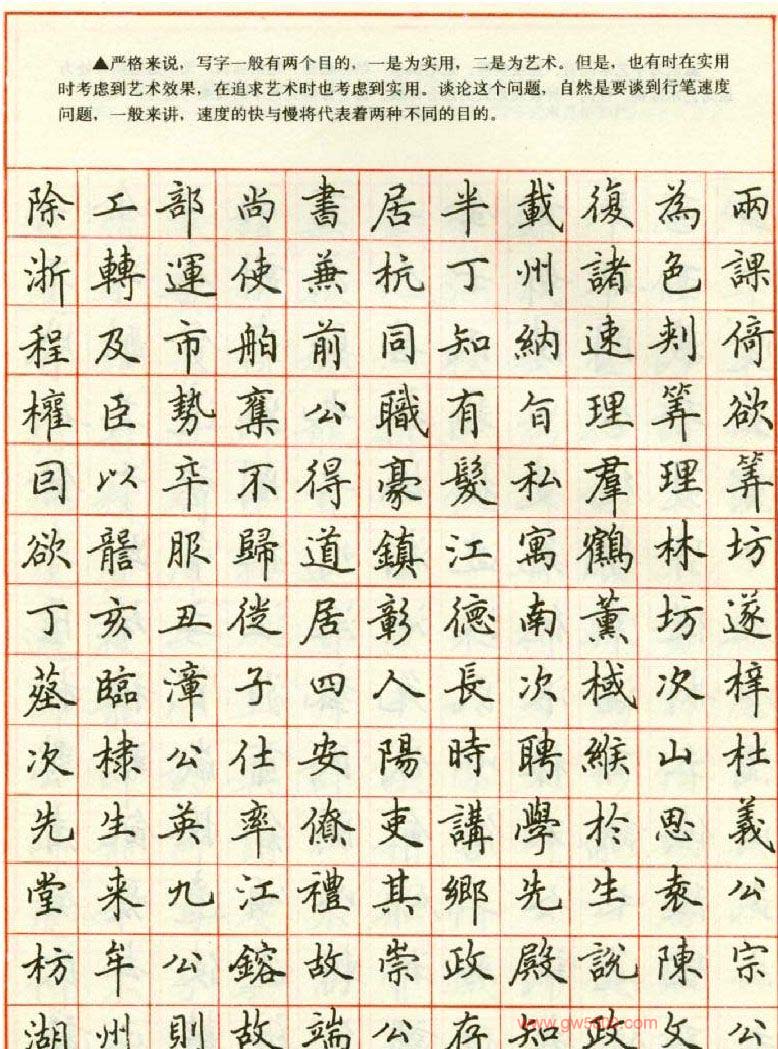 ▲严格来说，写字一般有两个目的，一是为实用，二是为艺术。但是，也有时在实用
时考虑到艺术效果，在追求艺术时也考虑到实用。谈论这个问题，自然是要谈到行笔速度
问题，一般来讲，速度的快与慢将代表着两种不同的目的。
除工部尚書居半載復為兩
浙轉運使兼杭丁州諸色課
程及市舶前同知納速剌倚
權臣勢奪公職有旨理筭欲
回以卒不得豪髮私羣理筭
欲讋服歸道鎮江寓鶴林坊
丁亥丑徙居彰德南薰坊遂
葬臨漳子四人長次棫次梓
次棣公仕安陽時聘緱山杜
先生英率僚吏講學於思義
堂来九江禮其鄉先生袁公
枋牟公鎔故崇政殿說陳宗
湖州則故端公存知政文公